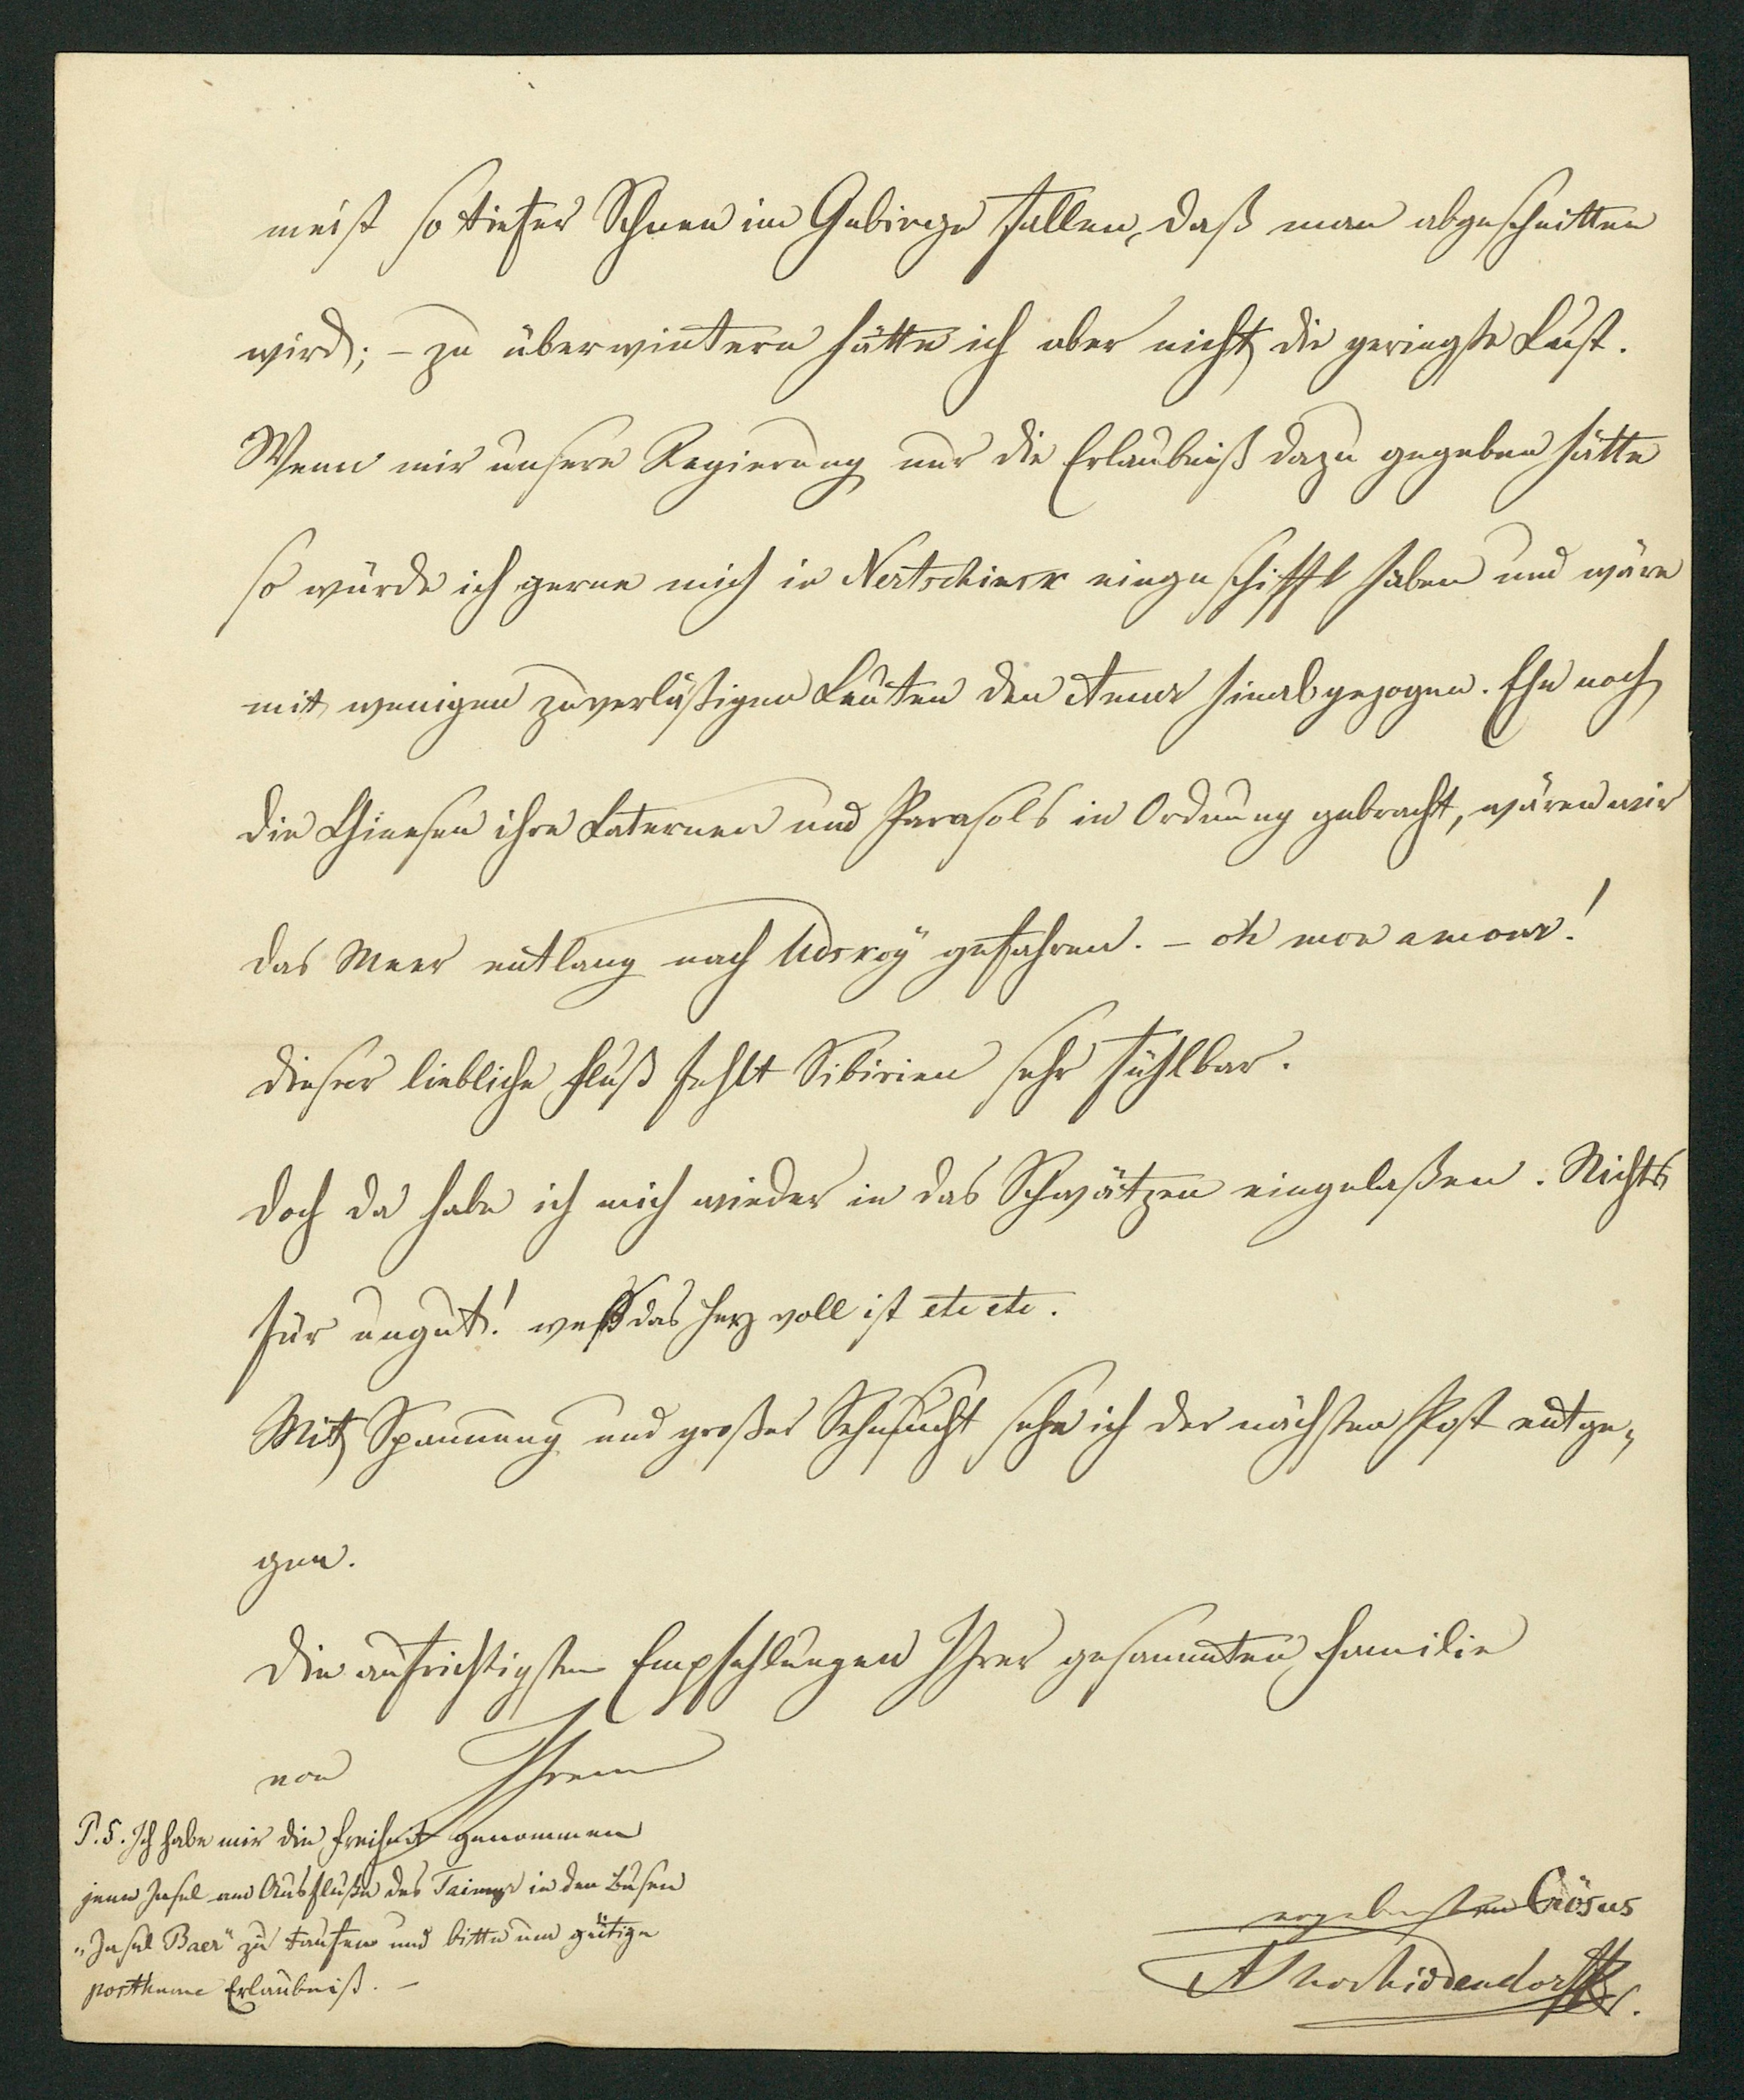 meist so tiefer Schnee im Gebirge fallen, daß man abgeschnitten
wird; – zu überwintern hätte ich aber nicht die geringste Lust.
Wenn mir unsere Regierung nur die Erlaubniß dazu gegeben hätte
so würde ich gerne mich in Nertschinsk eingeschifft haben und wäre
mit wenigen zuverläßigen Leuten den Amur hinabgezogen. Ehe noch
die Chinesen ihre Laternen und Parasols in Ordnung gebracht, wären wir
das Meer entlang nach Udskoÿ gefahren. – oh mon amour!
dieser liebliche Fluß fehlt Sibirien sehr fühlbar.
Doch da habe ich mich wieder in das Schwätzen eingelaßen. Nichts
für ungut! weß das Herz voll ist etc etc.
Mit Spannung und großer Sehnsucht sehe ich der nächsten Post entge-
gen.
Die aufrichtigsten Empfehlungen Ihrer gesammten Familie
von Ihrem
ergebensten Crösus
A von Middendorff.
P.S. Ich habe mir die Freiheit genommen
jene Insel am Ausfluße des Taimyr in den Busen
„Insel Baer" zu taufen und bitte um gütige
posthume Erlaubniß. –